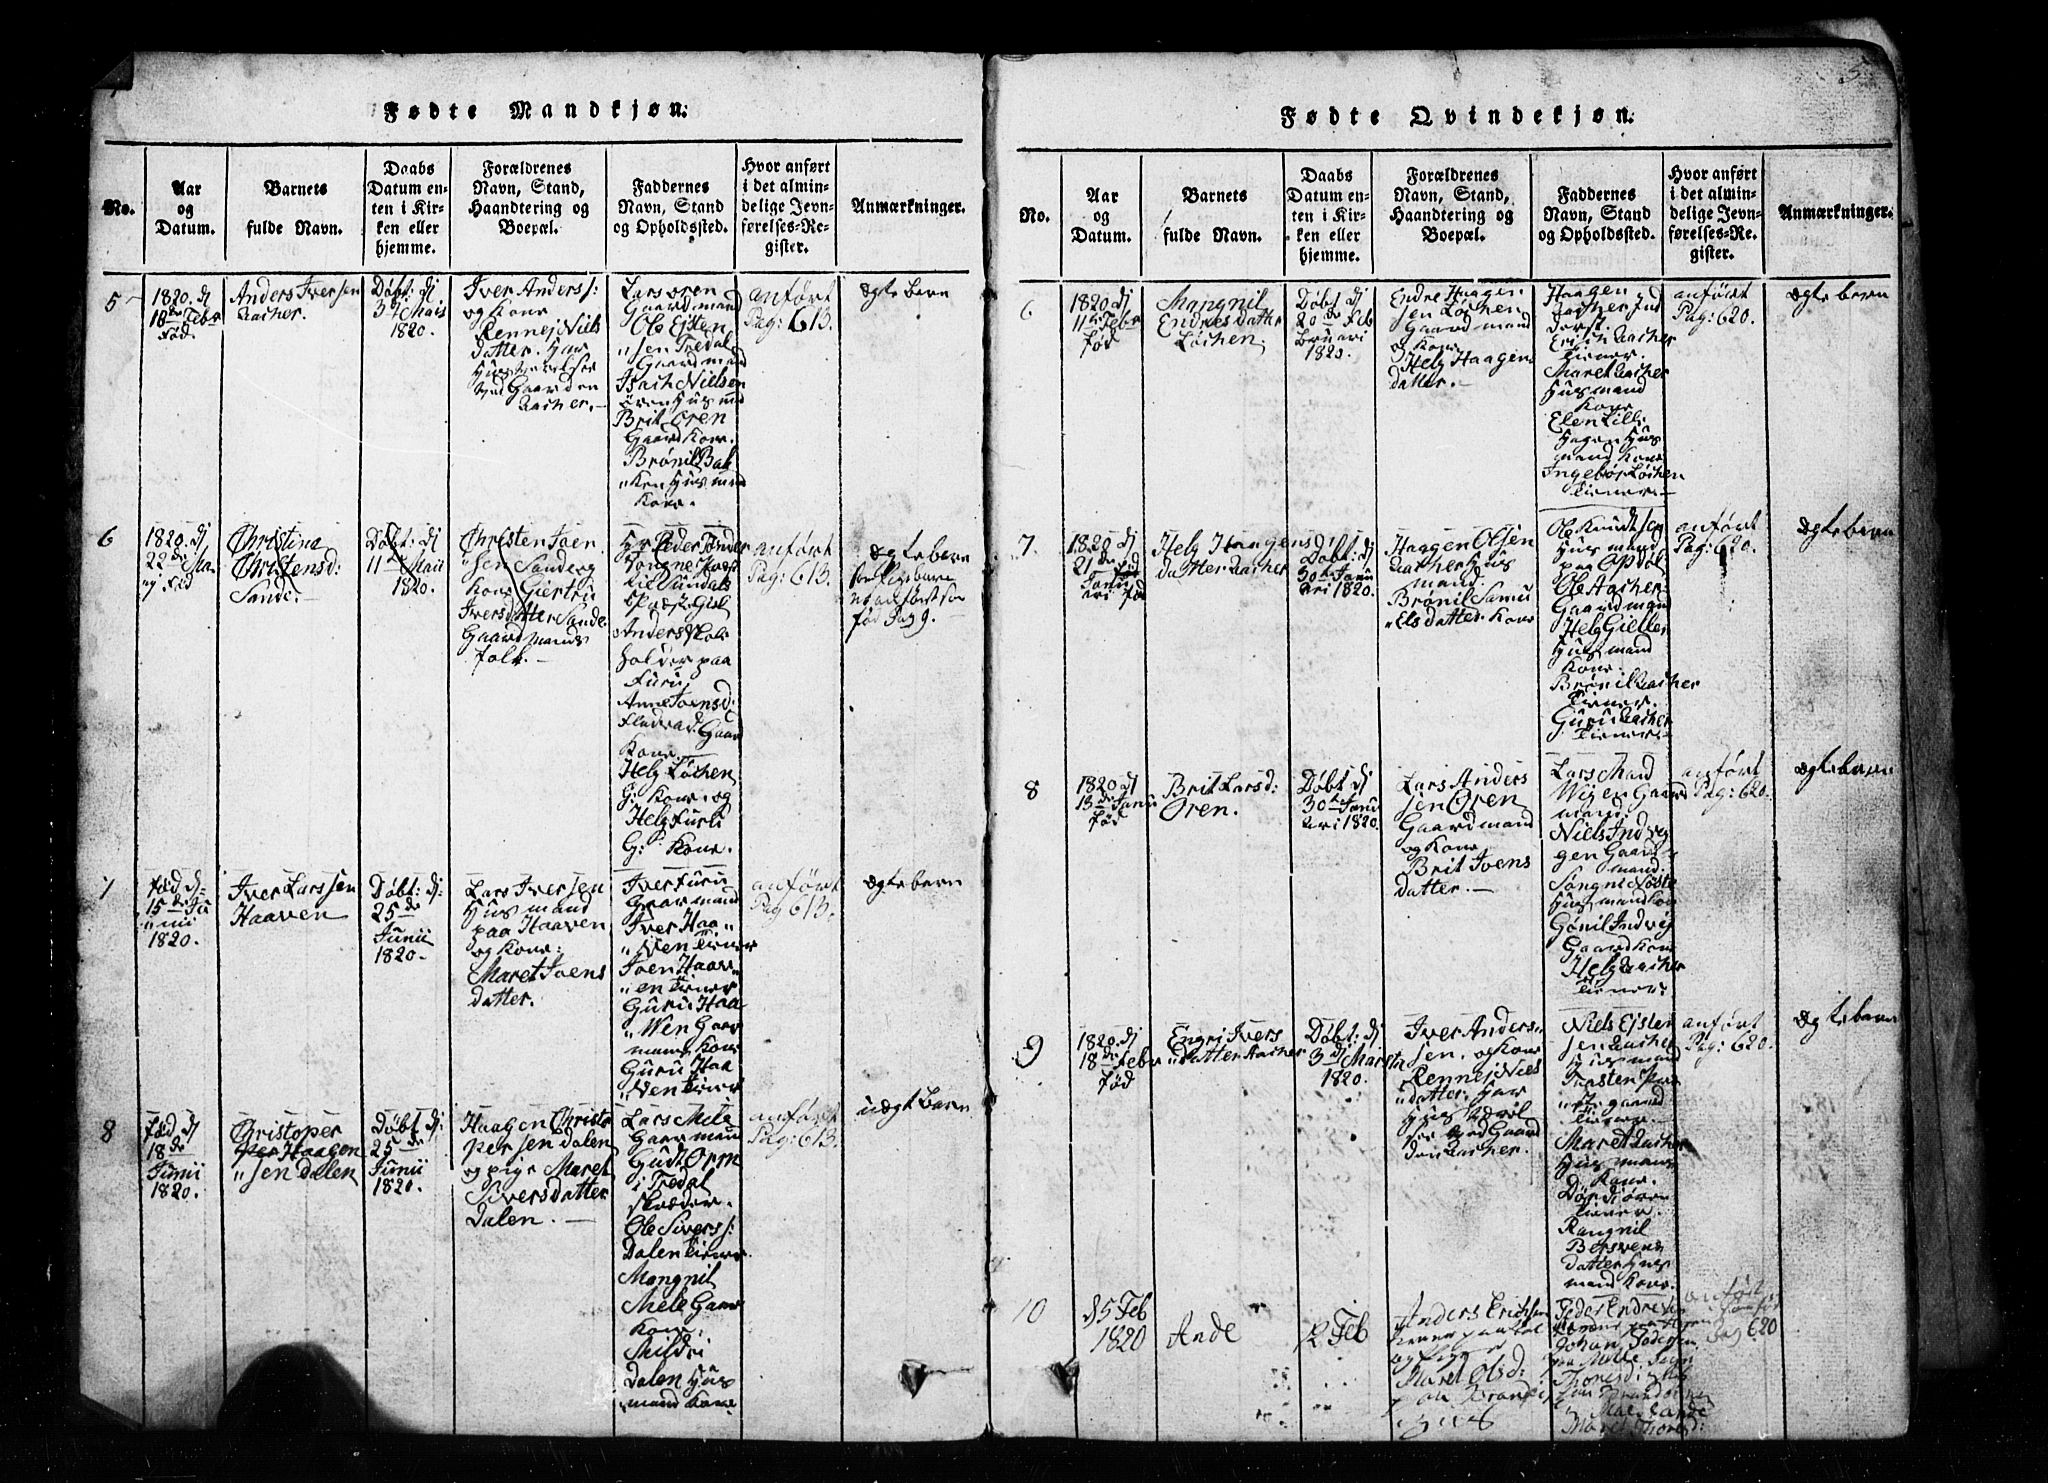 Fødte Mandkjøn.
No.
Aar
og
Datum.
Barnets
fulde Navn.
Daabs
Datum en-
ten i Kir-
ken eller
hjemme.
Forældrenes
Navn, Stand,
Haandtering og
Boepæl.
Faddernes
Navn, Stand
og Opholdssted.
Hvor anført
i det almin-
delige Jevn-
førelses-Re-
gister.
Anmærkninger.
5
1820. dj
18de Febr
Fød
Anders Iversen
Aacher.
Døbt: dj
3dj Mars
1820.
Iver Anders:
og Kone
Rennej Niels
datter. har
Huus
ved Gaarden
Aacher.
Lars Ören
Gaardmand
Ole Ejsten
"sen Tredal
Gaardmand
Isach Nielsen
ören Husmd
Brit Ören
Gaard Kone.
Brönil Bak
"ken Husmand
Kone.
anført
Pag: 613.
ægte barn
6
1820. dj
22de Ma
"j Fød
Christina
Christensd:
Sande.
Døbt: dj
11te
1820.
Christen Joen
"sen Sande og
Kone Giertru
Iversdatter Sande
Gaardmands
folk.
Anders Skole
holder paa
Furu
Anne Joensd:
Gaard
Kone
Helg Löchen
G: Kone. og
Helg Furu
G: Kone.
anført
Pag: 613.
ægte barn
fød Pag 9.
7
fød d:
15de Ju
"nii
1820.
Iver Larssen
Haaven
Døbt: dj:
25de
Junii
1820.
Lars Iversen
Husmand
paa Haaven
og Kone:
Maret Joens
datter.
Iver Furu
Gaarmand
Iver Haa"
"ven Tiener
Joen Haav"
"en Tiener
Guru Haa
"Wen Gaar
mans Kone
Guru Haa
"Ven Tiener
anført
Pag 613.
ægte barn
8
fød dj
18de
Junii
1820.
Christoper
Haagen
"sen Dalen
Døbt dj
25de
Junii
1820.
Haagen Christo
persen Dalen
og pige Maret
Siversdatter
Dalen.
Lars Mele
Gaarmand
Gudt Orm
i Tredal
skræder.
Ole Sivers:
Dalen Tiener
Mangnil
Mele Gaar
Kone.
Mildri
Dalen Hus
mand Kone
anført
Pag: 613.
uægte Barn
5
Fødte Qvindekjøn.
No.
Aar
og
Datum.
Barnets
fulde Navn.
Daabs
Datum en-
ten i Kir-
ken eller
hjemme.
Forældrenes
Navn, Stand,
Haandtering og
Boepæl.
Faddernes
Navn, Stand
og Opholdssted.
Hvor anført
i det almin-
delige Jevn-
førelses-Re-
gister.
Anmærkninger.
6
1820 dj
11te Febr
fød
Mangnil
Endres datter
Löchen.
Döbt dj
20de Feb
bruari
1820.
Endre Haagen
sen Löchen
Gaardmand
og Kone
Helg Haagens
datter.
Haagen
Aacher Ind
derst.
Erich Aacher
Tiener.
Maret Aacher
Husmand
Kone
Elen Lill
Hagen Hus
mand Kone
Ingebör Löchen
Tiener.
anført
Pag: 620.
ægte barn
7.
1820 dj
21de
Janu
ari fød
Helg Haagens
datter Aacher
Døbt: dj
30te Janu
ari 1820.
Haagen Olsen
Aacher Hus
mand.
Brönil Samu
"els datter. Kone
Ole Knudtsen
Husmand
paa Opdöl
Ole Aacher
Gaardmand
Helg Gieller
Husmand
Kone.
Brönil Aacher
Tiener.
Guru Aacher
Tiener
anført
Pag: 620.
ægte barn
8
1820 dj
18de Janu
fød
Brit Larsd:
Ören.
Døbt dj
30te Janu
ari 1820.
Lars Anders
sen Ören
Gaardmand
og Kone
Brit Joens
datter.
Lars Mard
Wijen Gaard
mand.
Niels Indvig
gen Gaard
mand.
Husmand Kone
Gönil Indvig
Gaard Kone
Helg Aacher
Tiener.
anført
Pag: 620.
ægte barn
9
1820. dj
18de Febr
fød
Engri Ivers
"datter Aacher
Døbt: dj:
3dj Marsta
1820.
Iver Anders"
sen. og Kone
Rennej Niels
"datter. har
Hus
ved Gaard
den Aacher.
Niels Ejsten
sen Aacher
Husmand
Torsten
Tiener
Maret Aacher
Husmans
Kone.
Dördi ören
Tiener.
Rangnil
Bersvens
datter Hus
mand Kone.
anført
Pag: 620.
ægte barn
10
d 5 Feb
1820
Ande
12 Feb
Anders Erichsen
og Pige
Maret Olsd:
Peder Endresen
Johan Pedersen
Maret Thoresd:
anført
Pag 620